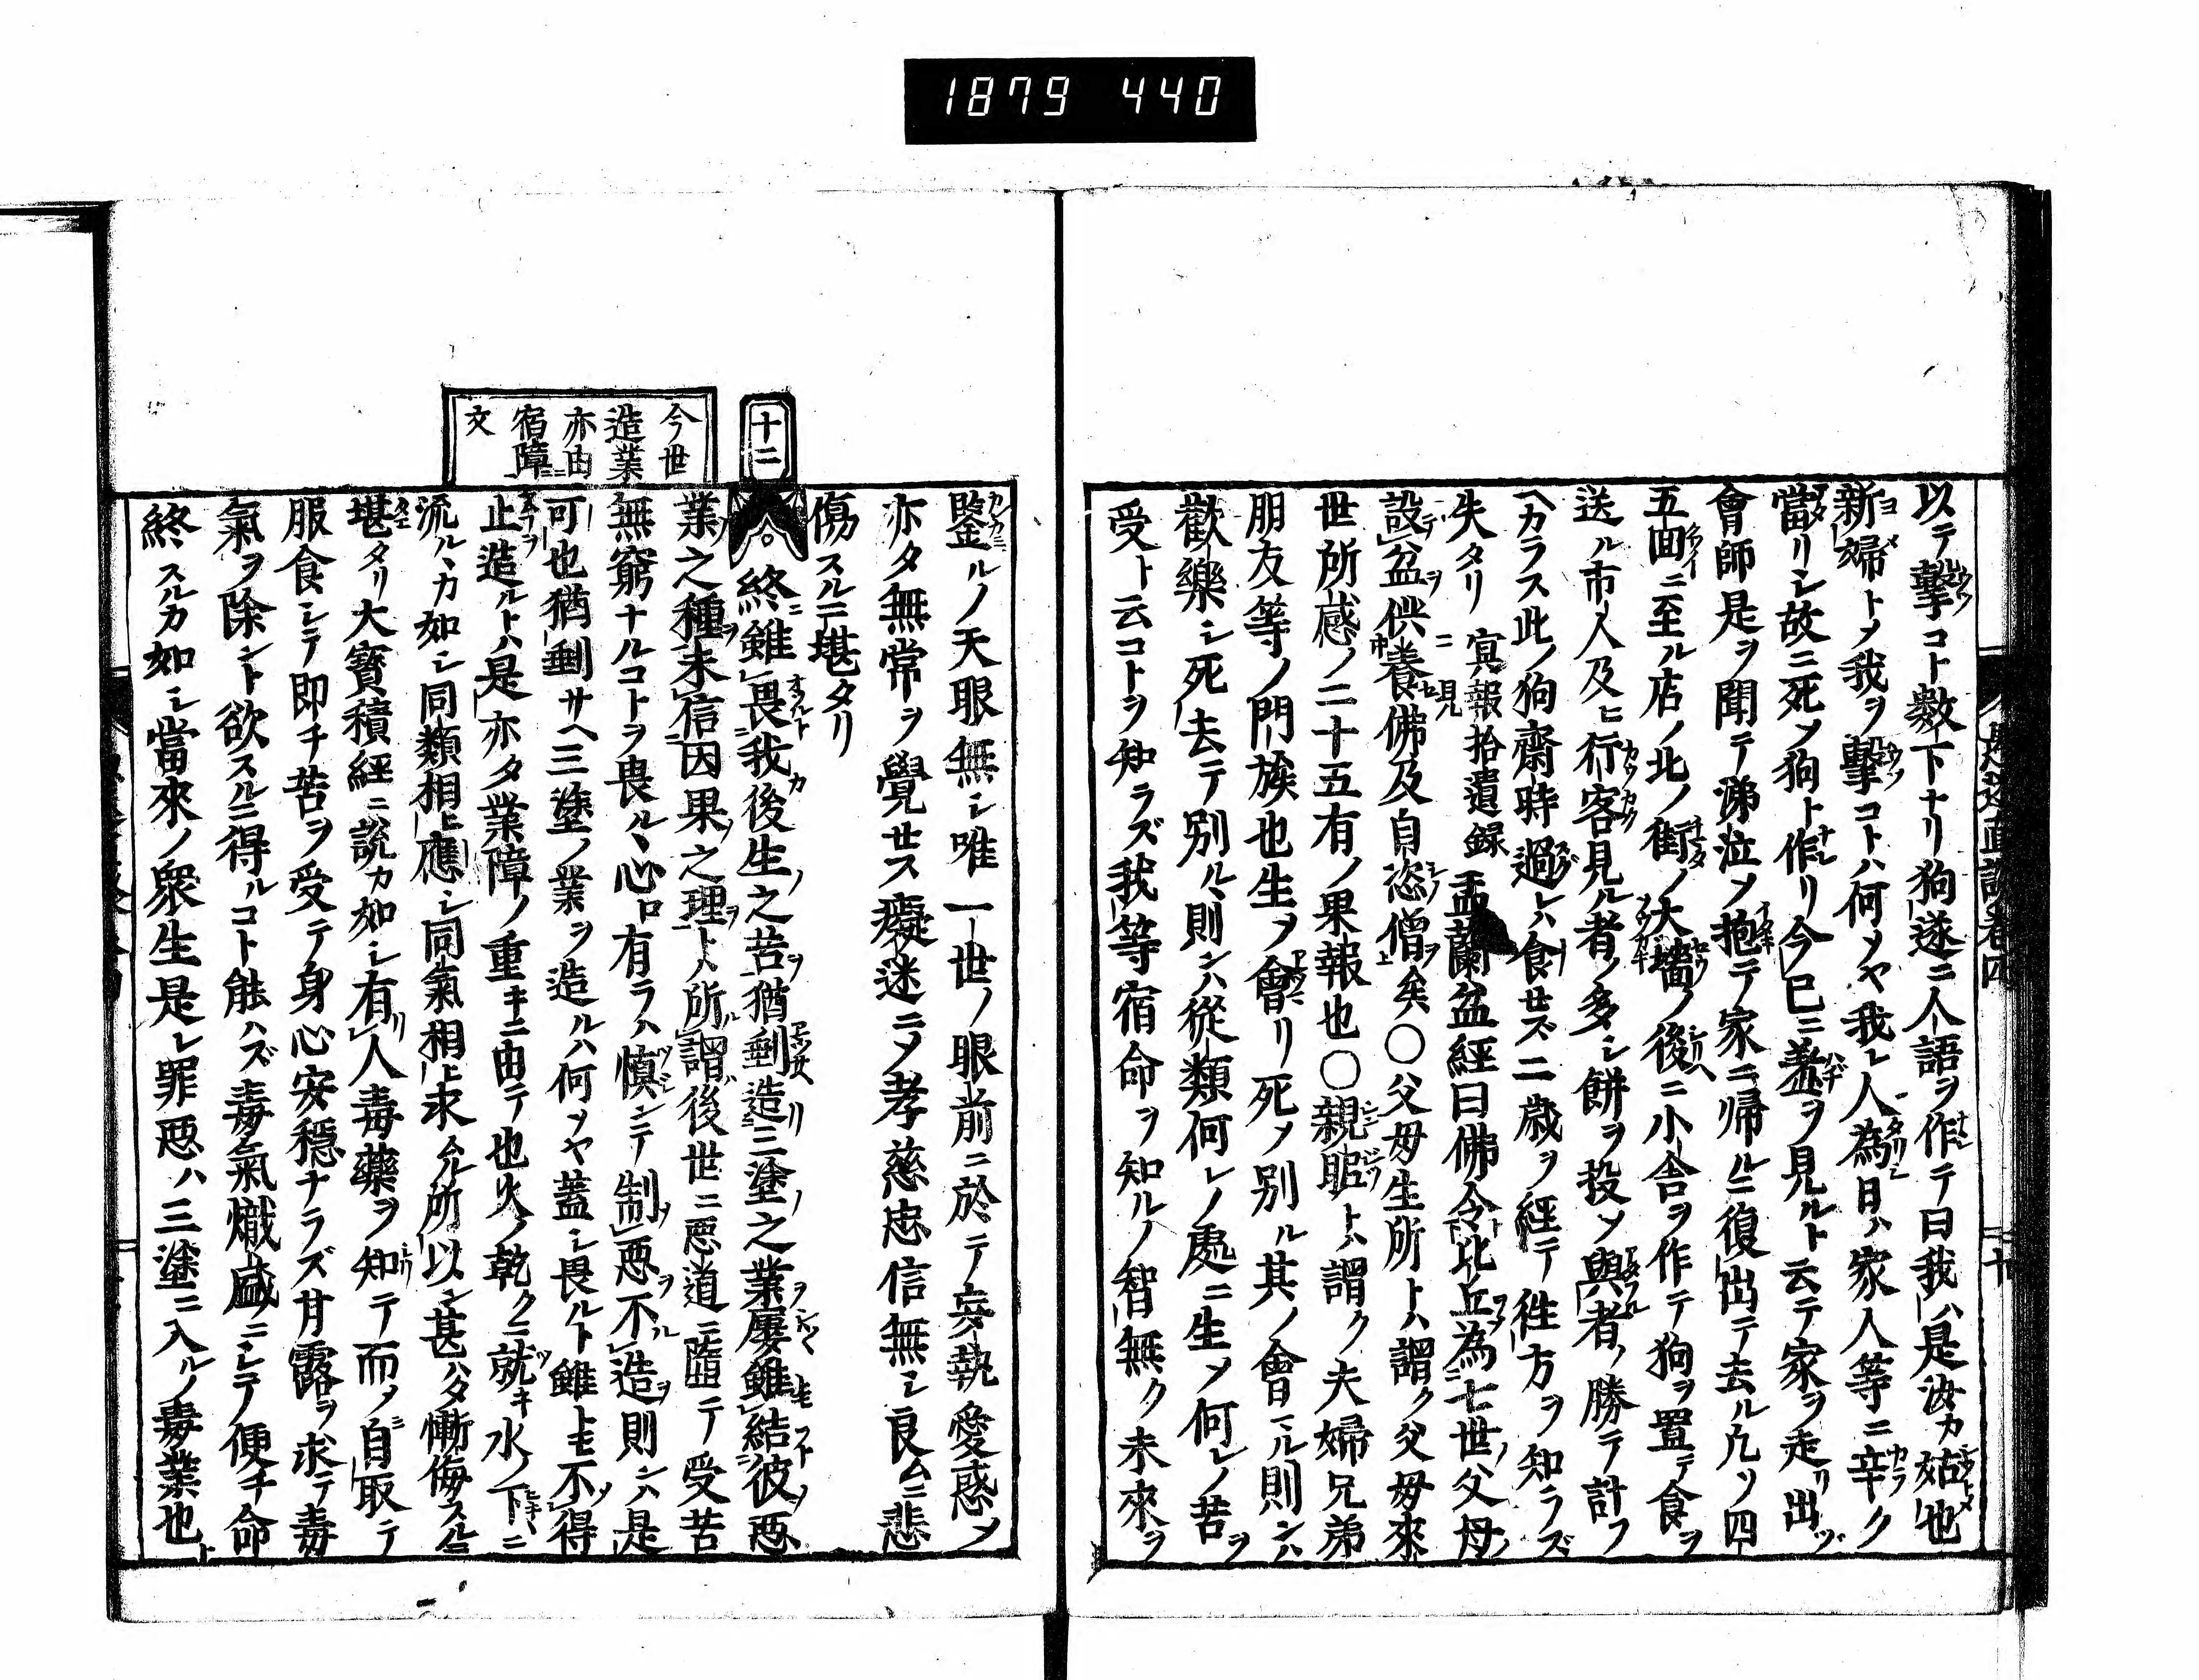 1879 440
以テ撃コト數下ナリ狗遂ニ人語ヲ作テ曰我ハ是汝カ姑也
新婦トメ我ヲ撃コトハ何ソヤ我レ人為日ハ家人等ニ辛ク
當リシ故ニ死ソ狗ト作リ今已ニ羞ヲ見ルト云テ家ヲ走リ出ヅ
會師是ヲ聞テ涕泣ソ抱テ家ニ帰ルニ復出テ去ル凡ソ四
五面ニ至ル店ノ北ノ街ノ大墻ノ後ニ小舎ヲ作テ狗ヲ置テ食ヲ
送ル市人及ヒ行客見ル者ノ多シ餅ヲ投ソ與者ノ勝テ計フ
ヘカラス此ノ狗齋時過レハ食セズ二歳ヲ經テ徃方ヲ知ラズ
失タリ 見冥報拾遺録 盂蘭盆經曰佛令比丘為七世父母
設盆供養佛及自恣僧矣〇父母生所トハ謂ク父母來
世所感ノ二十五有ノ果報也〇親昵トハ謂ク夫婦兄弟
朋友等ノ門族也生ヲ會リ死ソ別ル其ノ會ル則ンハ
歡樂シ死去テ別ル則ンハ從類何レノ處ニ生ソ何レノ苦ヲ
受ト云コトヲ知ラズ我等宿命ヲ知ルノ智無ク未來ヲ
鑒ルノ天眼無シ唯一世ノ眼前ニ於テ妄執愛惑ソ
亦タ無常ヲ覺セス癡迷ニソ孝慈忠信無シ良ニ悲
傷スルニ堪タリ
十二
今世
造業
亦由
宿障
文
終雖畏我後生之苦猶剰造三塗之業屢雖結彼惡
業之種未信因果之理ト所謂後世ニ惡道ニ墮テ受苦
無窮ナルコトヲ畏ル心ロ有ラハ慎ンテ制惡不造則ンハ是
可也猶剰サヘ三塗ノ業ヲ造ルハ何ソヤ蓋シ畏ルト雖トモ不得
止造ルトハ是亦タ業障ノ重キニ由テ也火ノ乾クニ就キ水ノ下ニ
流ルカ如シ同類相應シ同氣相求ル所以ン甚ハタ慚侮スルニ
堪タリ大寶積經ニ説カ如シ有人毒藥ヲ知テ而ソ自取テ
服食シテ即チ苦ヲ受テ身心安穩ナラズ甘露ヲ求テ毒
氣ヲ除ント欲スルニ得ルコト能ハズ毒氣熾盛ニシテ便チ命
終スルカ如シ當來ノ衆生是レ罪惡ハ三塗ニ入ルノ毒業也